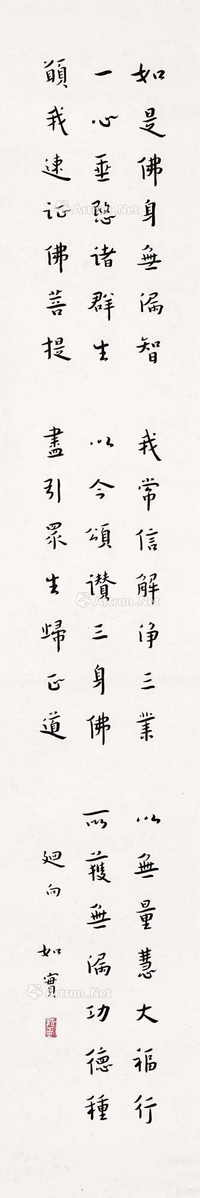 如是佛身無漏智　我常信解淨三業　以無量慧大福行
一心垂愍諸群生　以今頌讚三身佛　所獲無漏功德種
願我速証佛菩提　盡引眾生歸正道　廻向　如實
Artron.Net
Artron.Net
Artron.Net